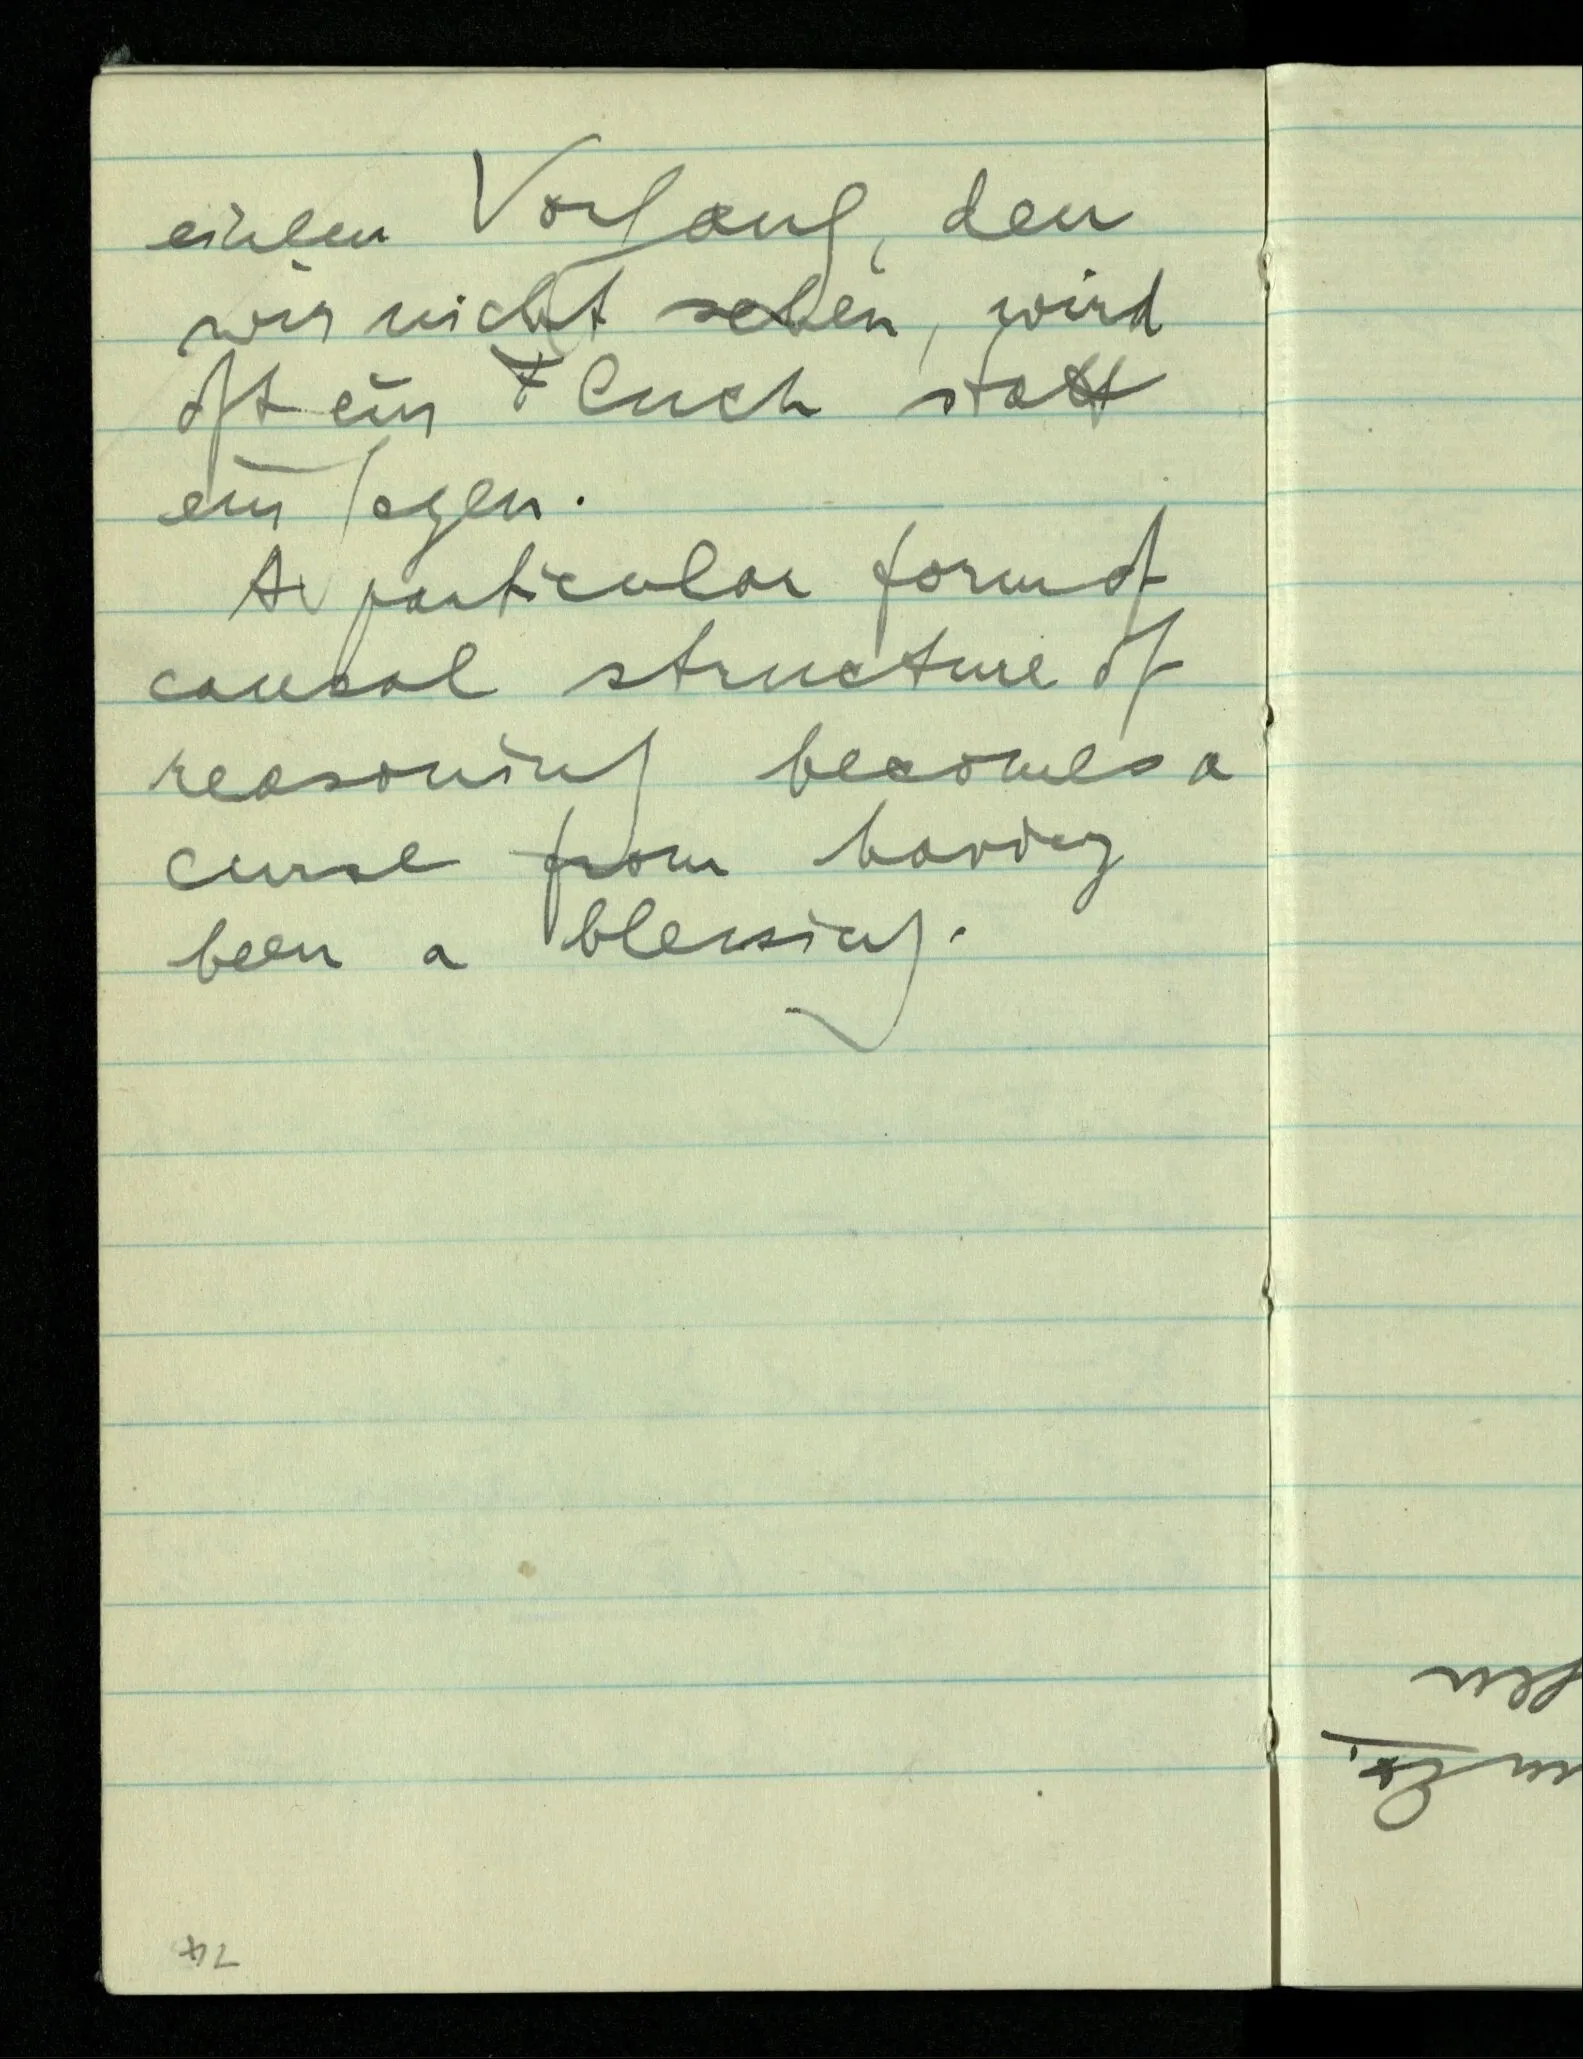 einen Vorgang, den
wir nicht sehen, wird
oft ein Fluch statt
ein Segen.
A particular form of
causal structure of
reasoning becomes a
curse from having
been a blessing.
74